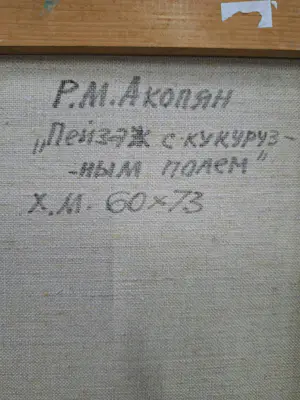 Р.М.Акопян
„Пейзаж с кукуруз-
-ным полем"
Х.М. 60×73